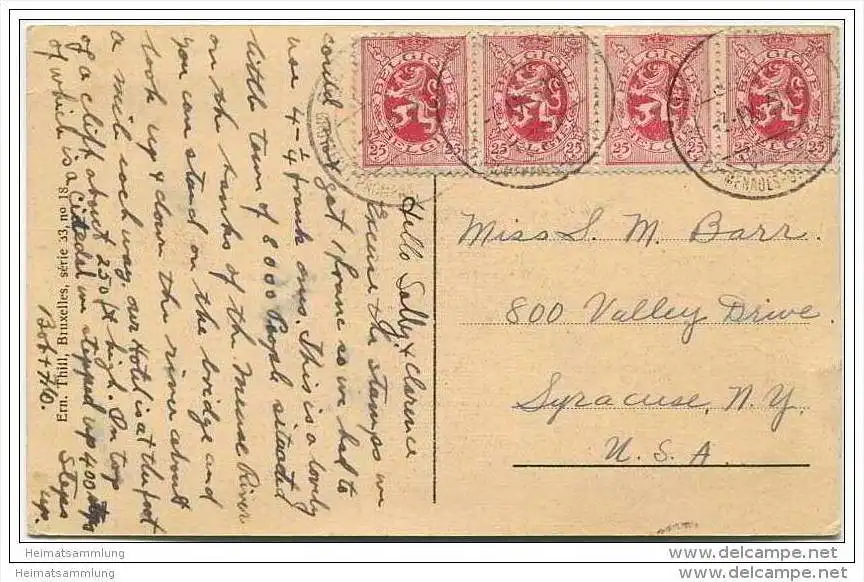 Hello Sally & Clarence
Excuse the stamps we
couldn't get 1 franc so we had to
use 4-¼ frank ones. This is a lovely
little town of 8000 People situated
on the banks of the Meuse River
you can stand on the bridge and
look up & down the river about
a mile each way. Our Hotel is at the foot
of a cliff about 250 ft high. On top
of which is a Citadel we stepped up 400 steps
Steps up.
Bob + Flo.
Ern. Thill, Bruxelles, série 33, no 18
BELGIQUE
25 25
BELGIË
BELGIQUE
25 25
BELGIË
BELGIQUE
25 25
BELGIË
BELGIQUE
25 25
BELGIË
Miss S. M. Barr.
800 Valley Drive.
Syracuse, N.Y.
U.S.A.
Heimatsammlung
Heimatsammlung
delcampe.net
delcampe.net